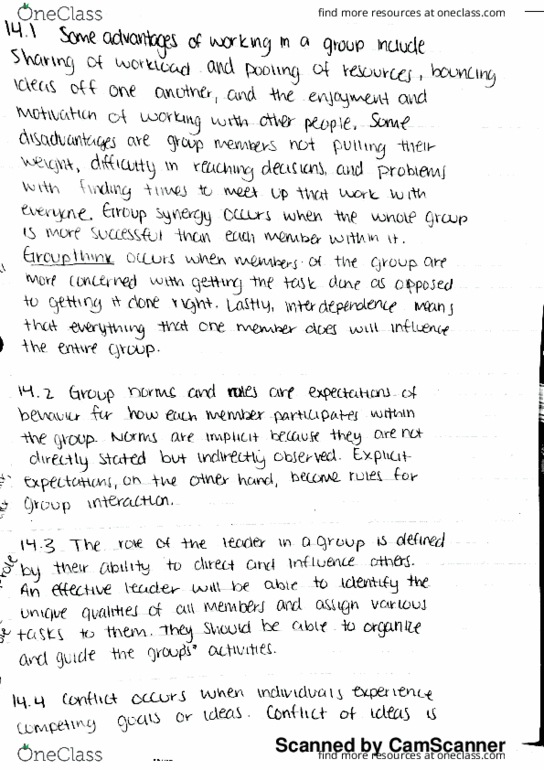 OneClass
find more resources at oneclass.com
14.1 Some advantages of working in a group include
Sharing of workload and pooling of resources, bouncing
ideas off one another, and the enjoyment and
motivation of working with other people. Some
disadvantages are group members not pulling their
weight, difficulty in reaching decisions, and problems
with finding times to meet up that work with
everyone. Group synergy occurs when the whole group
is more successful than each member within it.
Groupthink occurs when members of the group are
more concerned with getting the task done as opposed
to getting it done right. Lastly, interdependence means
that everything that one member does will influence
the entire group.
14.2 Group norms and rules are expectations of
behavior for how each member participates within
the group. Norms are implicit because they are not
directly stated but indirectly observed. Explicit
expectations, on the other hand, become rules for
group interaction.
14.3 The role of the leader in a group is defined
by their ability to direct and influence others.
An effective leader will be able to identify the
unique qualities of all members and assign various
tasks to them. They should be able to organize
and guide the groups' activities.
14.4 Conflict occurs when individuals experience
competing goals or ideas. Conflict of ideas is
Scanned by CamScanner
OneClass
find more resources at oneclass.com